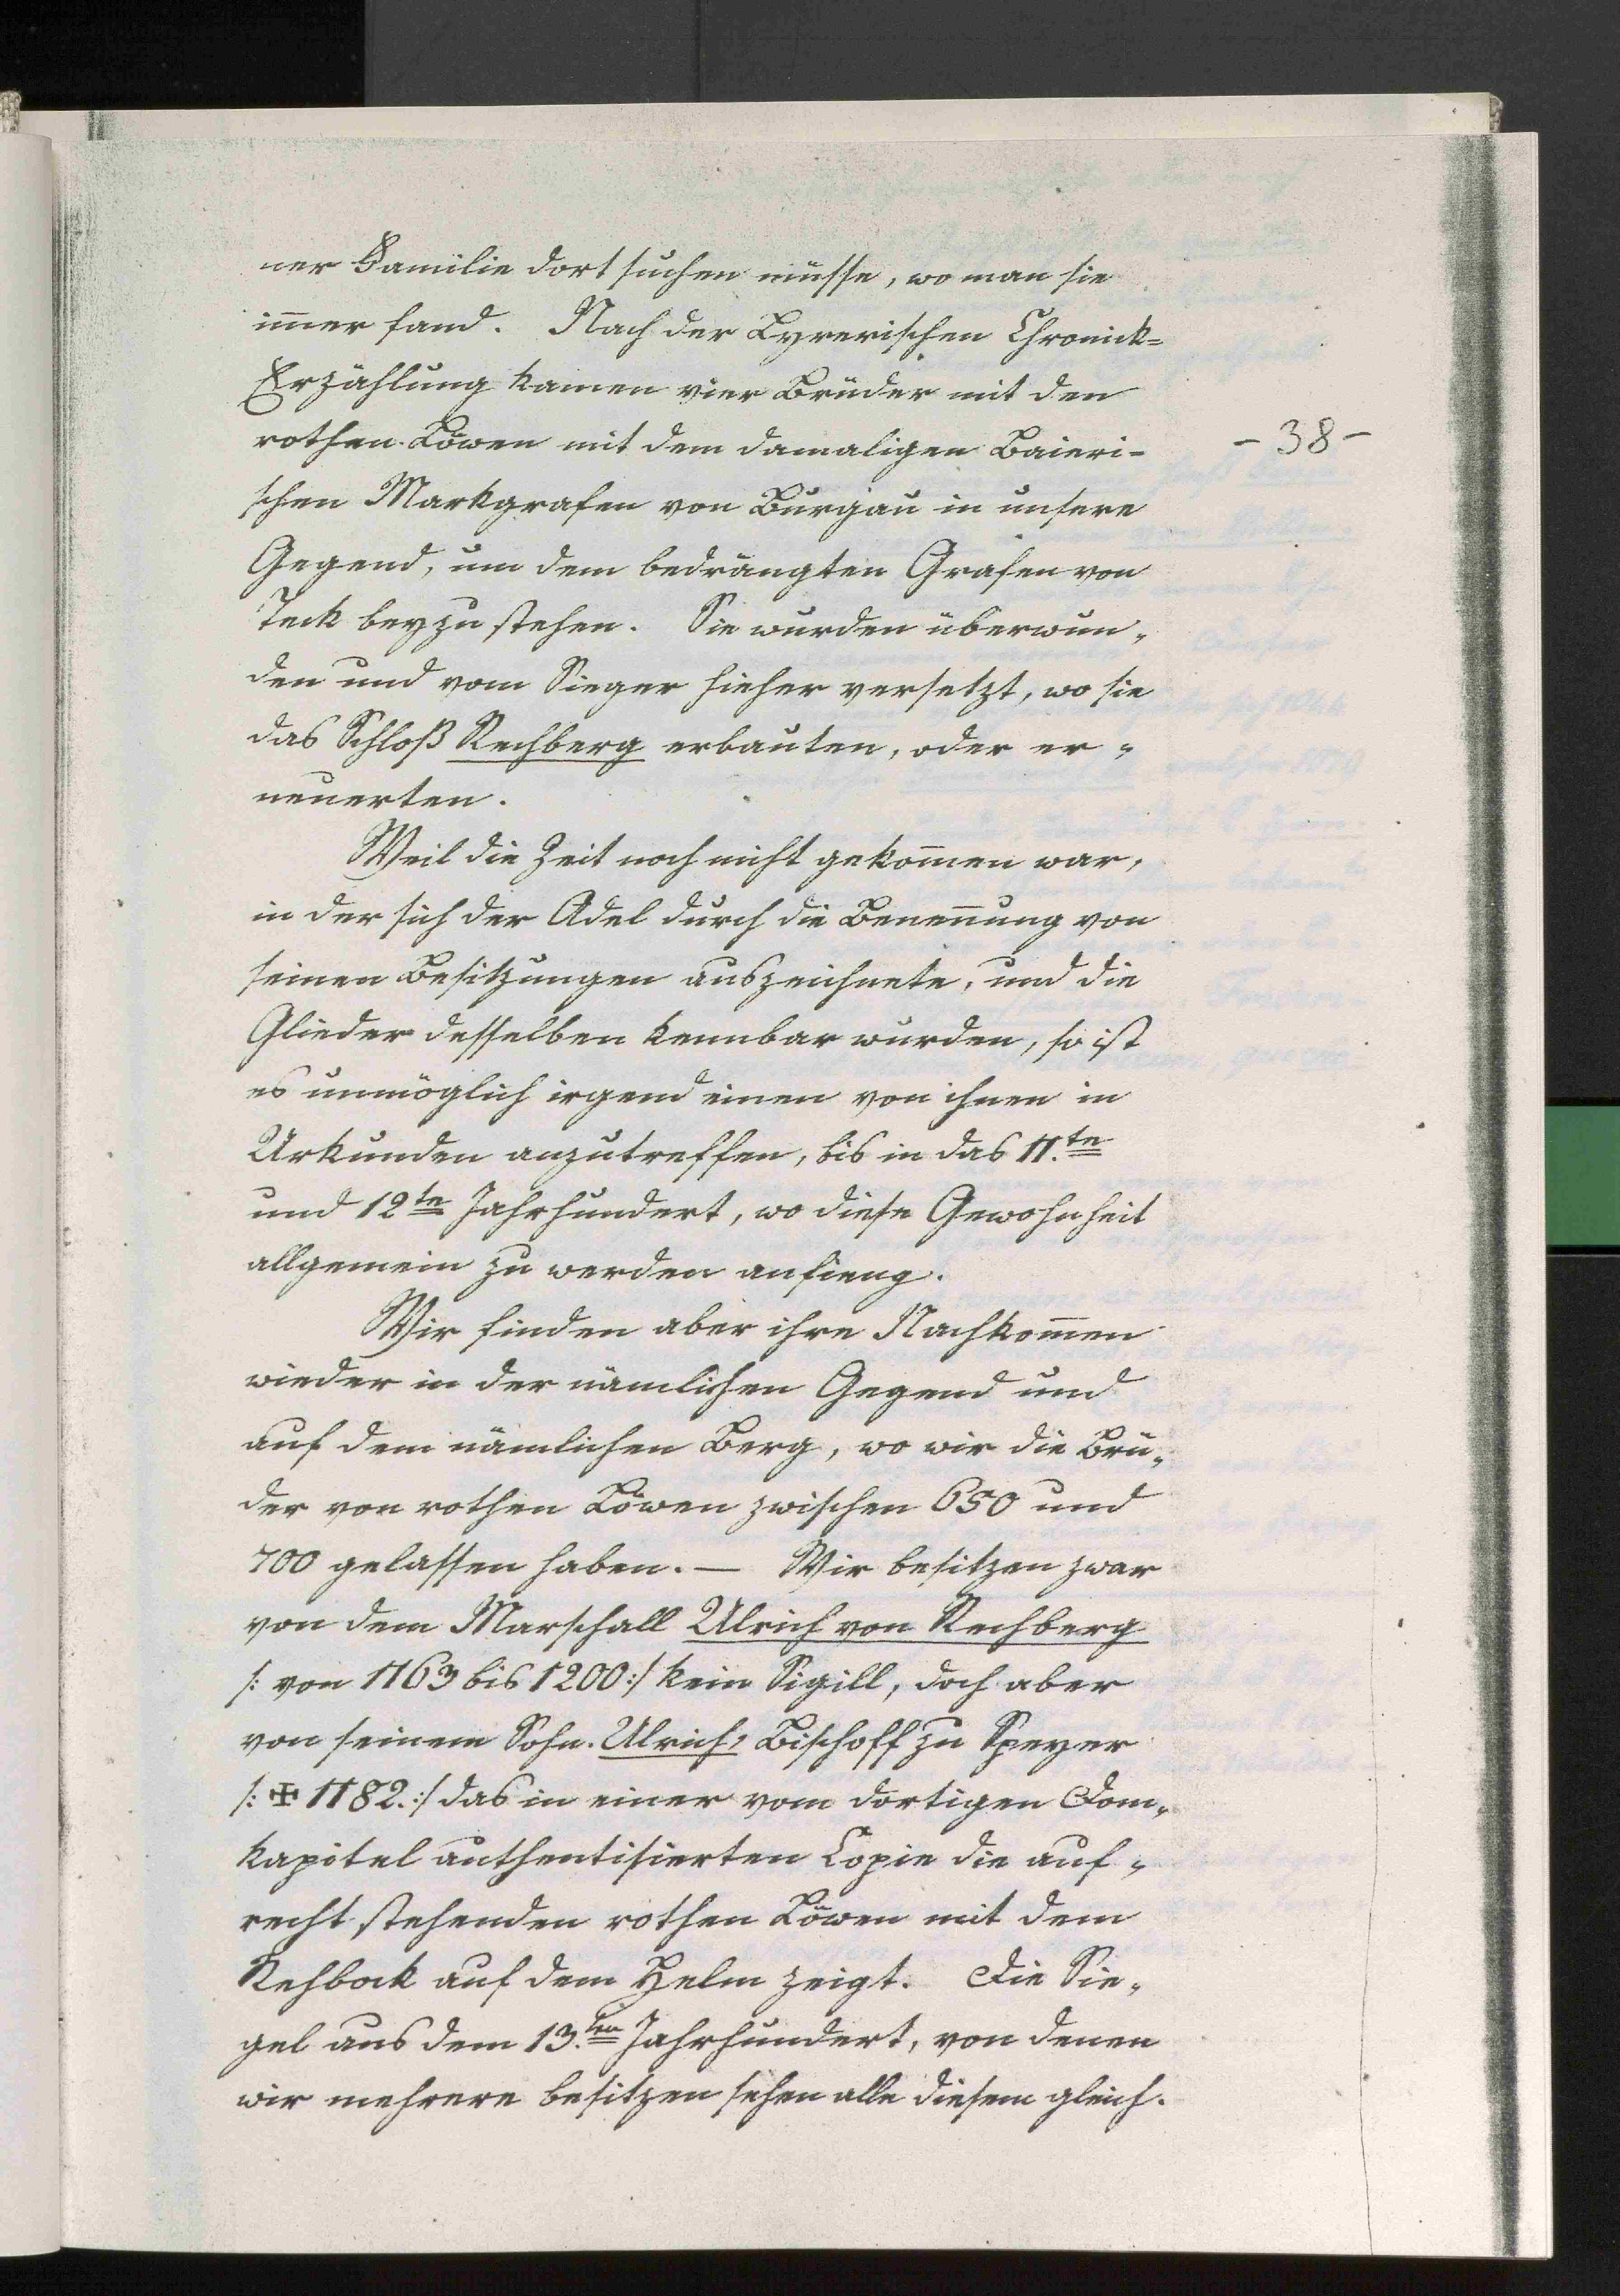 ner Familie dort suchen müsse, wo man sie
im̄er fand. Nach der Lyrerischen Chronick-
Erzählung kamen vier Brüder mit den
rothen Löwen mit dem damaligen Baieri-
- 38 -
schen Markgrafen von Burgau in unsere
Gegend, um dem bedrängten Grafen von
Teck beyzustehen. Sie wurden überwun-
den und vom Sieger hieher versetzt, wo sie
das Schloß Rechberg erbauten, oder er-
neuerten.
Weil die Zeit noch nicht gekom̄en war,
in der sich der Adel durch die Benen̄ung von
seinen Besitzungen auszeichnete, und die
Glieder desselben kennbar wurden, so ist
es unmöglich irgend einen von ihnen in
Urkunden anzutreffen, bis in das 11.te
und 12te Jahrhundert, wo diese Gewohnheit
allgemein zu werden anfieng.
Wir finden aber ihre Nachkom̄en
wieder in der nämlichen Gegend und
auf dem nämlichen Berg, wo wir die Brü-
der von rothen Löwen zwischen 650 und
700 gelassen haben. — Wir besitzen zwar
von dem Marschall Ulrich von Rechberg
/: von 1163 bis 1200 :/ kein Sigill, doch aber
von seinem Sohn. Ulrich, Bischoff zu Speyer
/: ✠ 1182. :/ das in einer vom dortigen Dom-
kapitel authentisierten Copie die auf-
recht stehenden rothen Löwen mit dem
Rehbock auf dem Helm zeigt. Die Sie-
gel aus dem 13.ten Jahrhundert, von denen
wir mehrere besitzen sehen alle diesem gleich.